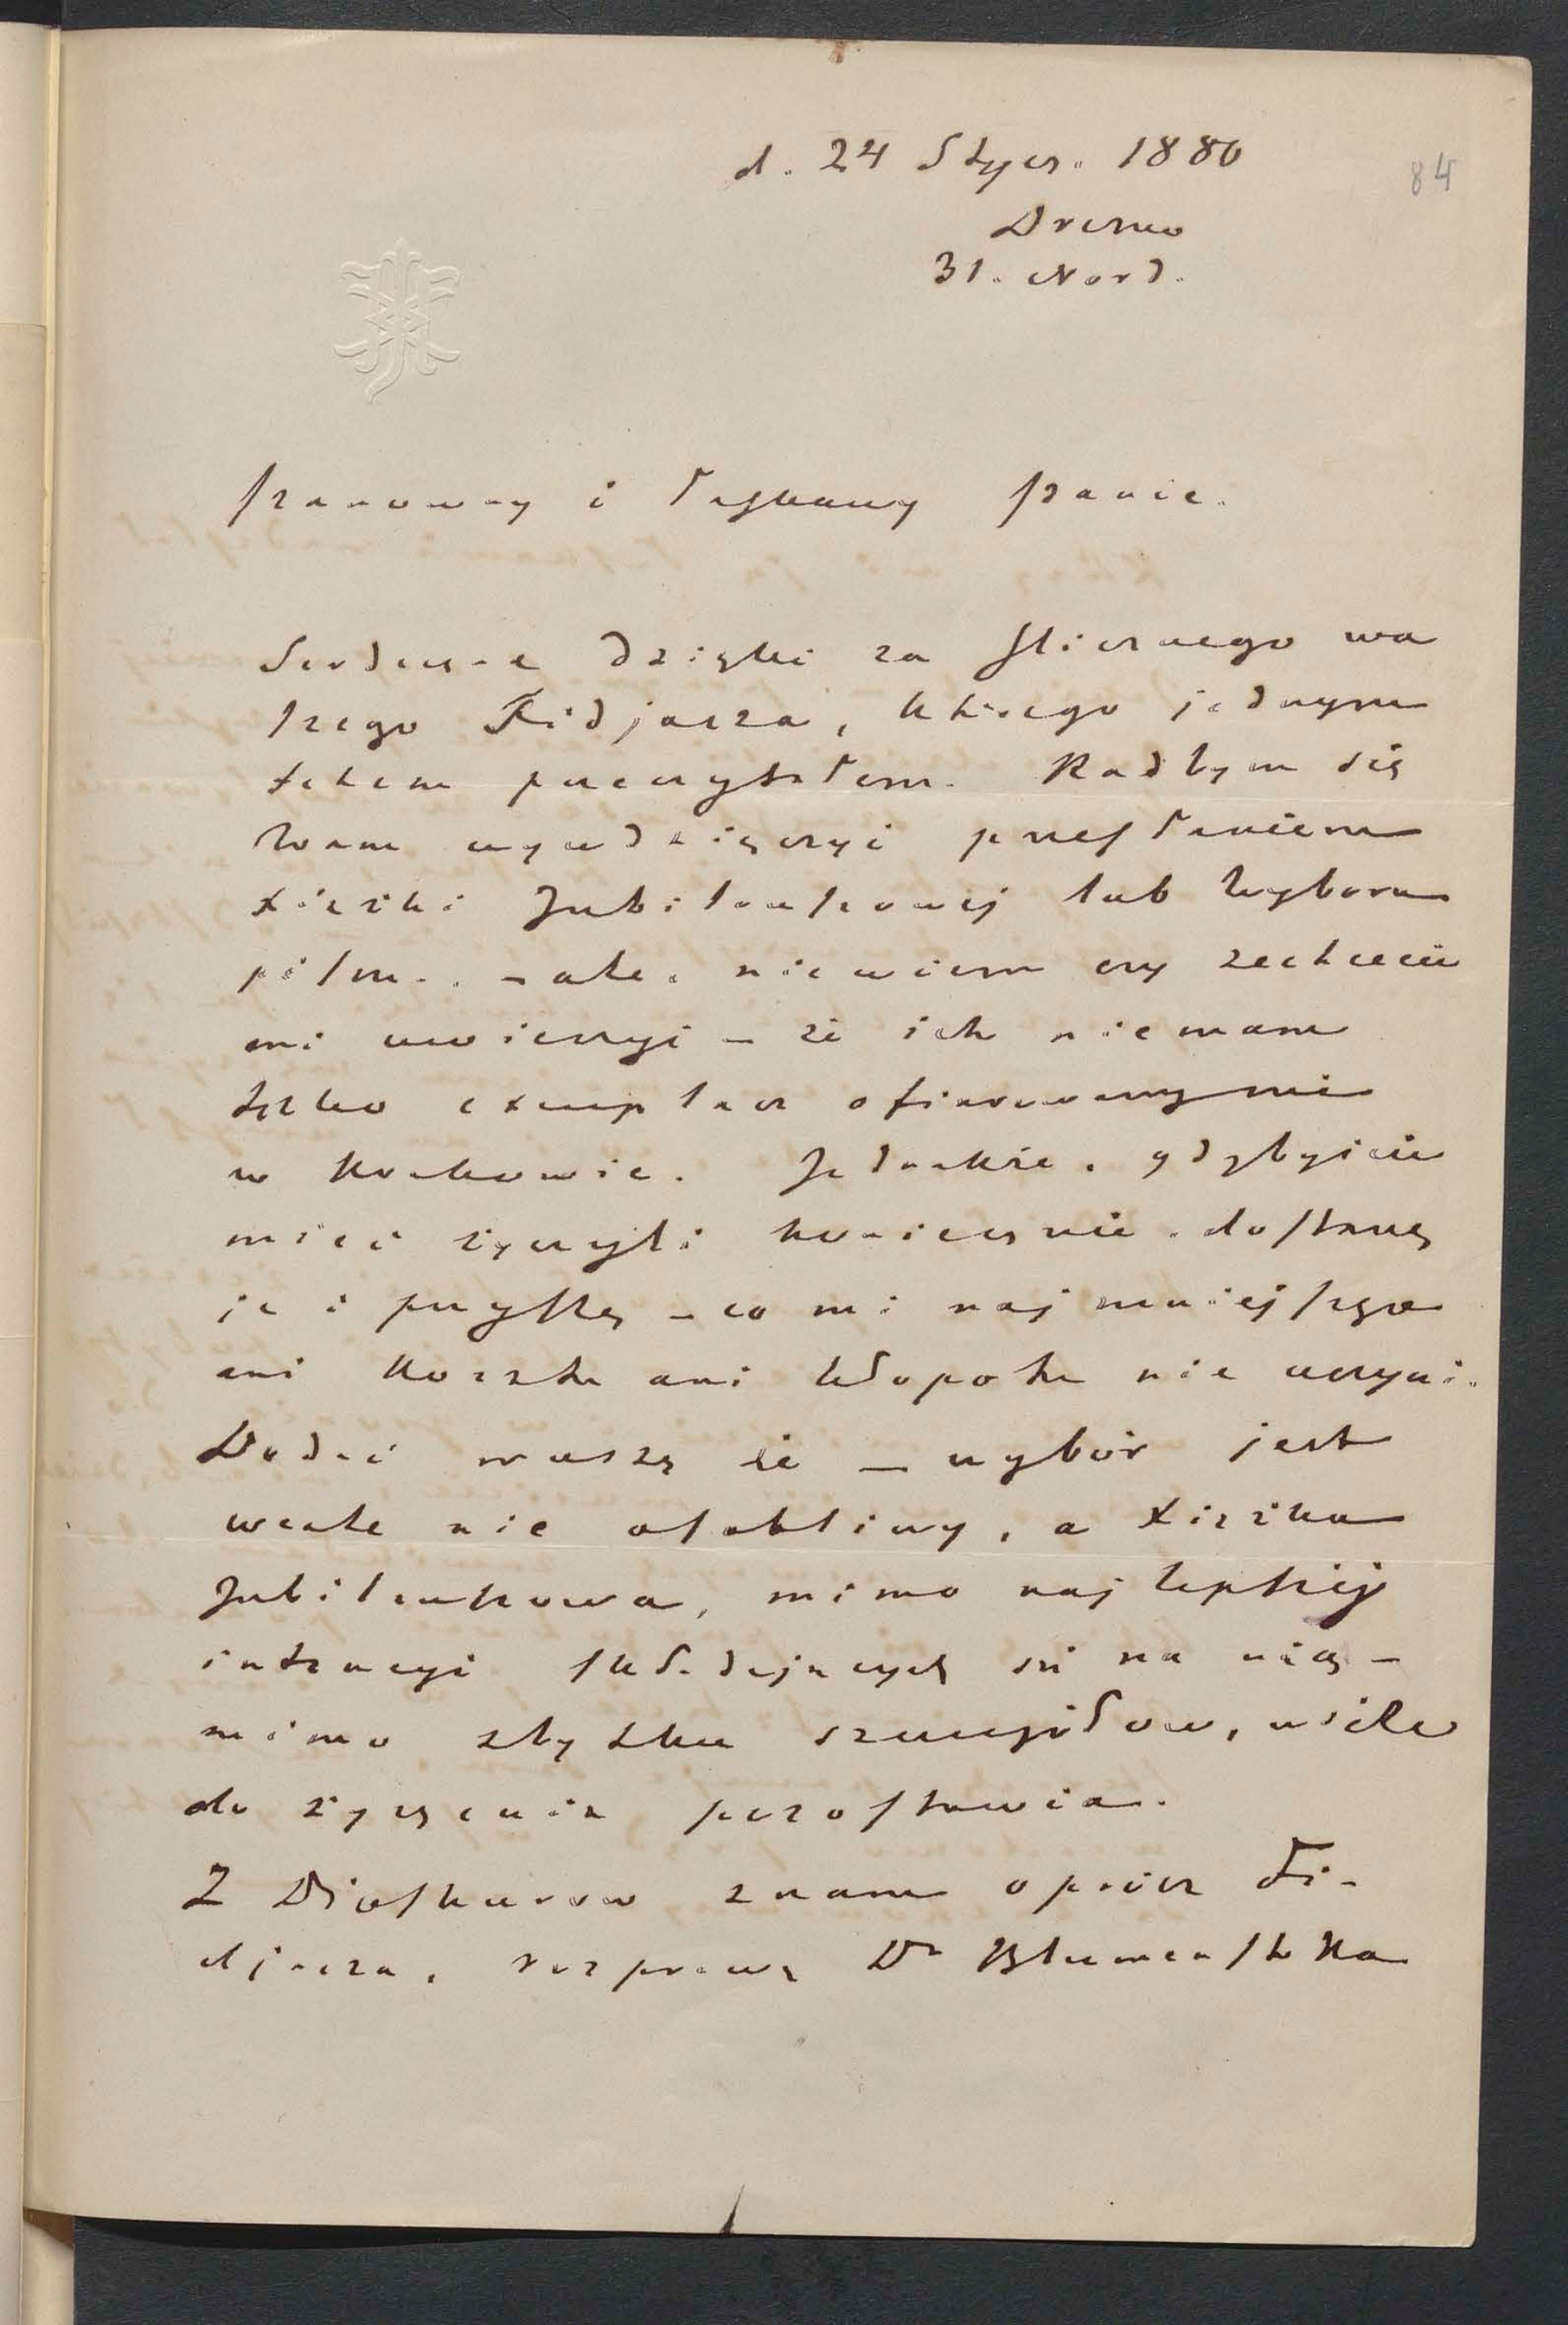 d. 24 Stycz. 1880
84
Drezno
31. Nord.
Szanowny i Łaskawy Panie.
Serdeczne dzięki za slicznego wa
szego Fidjasza, którego jednym
tchem przeczytałem. Radbym się
Wam wywdzięczyć przesłaniem
Xiążki Jubileuszowej lub Wyboru
pism. – ale, niewiem czy zechcecie
mi uwierzyć – że ich niemam
tylko exemplarz ofiarowany mi
w Krakowie. Jednakże, gdybyście
mieć życzyli koniecznie. dostanę
je i przyszlę – co mi najmniejszego
ani kosztu ani kłopotu nie uczyni.
Dodać muszę że – wybór jest
wcale nie osobliwy, a Xiążka
Jubileuszowa, mimo najlepszej
intencyi składających się na nią –
mimo zbytku szczegółow, wiele
do życzenia pozostawia.
Z Dioskurow znam oprócz Fi-
djasza, rozprawę Dr Blumenstoka